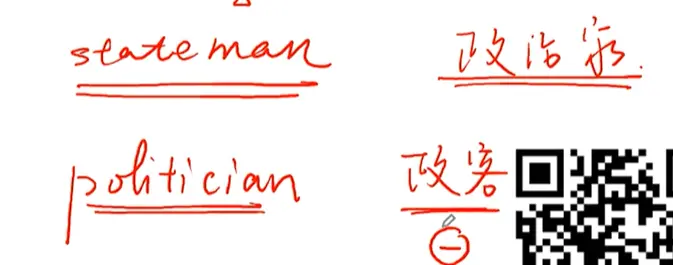 stateman 政治家.
politician 政客
⊖